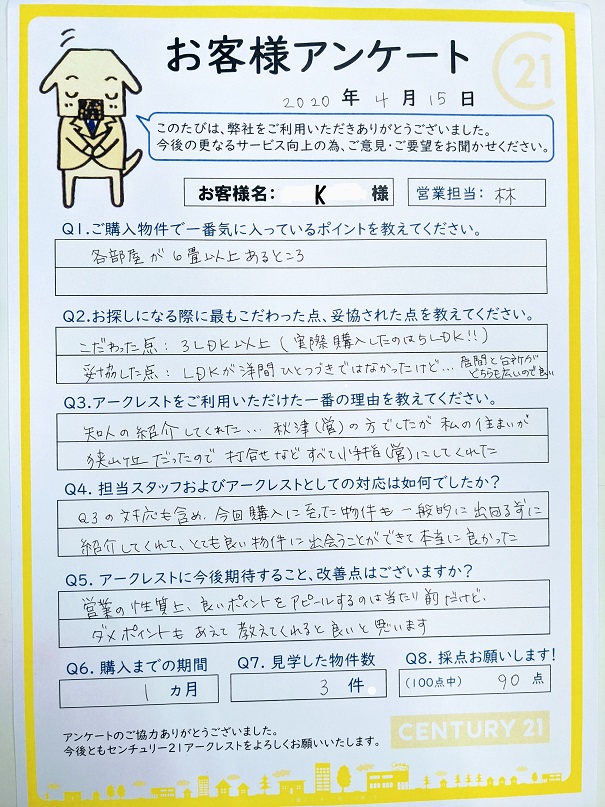 お客様アンケート
21
2020 年 4 月 15 日
このたびは、弊社をご利用いただきありがとうございました。
今後の更なるサービス向上の為、ご意見・ご要望をお聞かせください。
お客様名： K 様
営業担当： 林
Q1.ご購入物件で一番気に入っているポイントを教えてください。
各部屋が6畳以上あるところ
Q2.お探しになる際に最もこだわった点、妥協された点を教えてください。
こだわった点：3LDK以上（実際購入したのは5LDK!!）
妥協した点：LDKが洋間ひとつづきではなかったけど… 居間と台所が
どちらも広いので良い
Q3.アークレストをご利用いただけた一番の理由を教えてください。
知人の紹介してくれた… 秋津(営)の方でしたが 私の住まいが
狭山ヶ丘だったので 打合せなど すべて小手指(営)にしてくれた
Q4. 担当スタッフおよびアークレストとしての対応は如何でしたか？
Q3の対応も含め、今回購入に至った物件も 一般的に出回る前に
紹介してくれて、とても良い物件に出会うことができて本当に良かった
Q5. アークレストに今後期待すること、改善点はございますか？
営業の性質上、良いポイントをアピールするのは当たり前だけど、
ダメポイントも あえて 教えてくれると良いと思います
Q6. 購入までの期間
1 ヵ月
Q7. 見学した物件数
3 件
Q8. 採点お願いします！
(100点中) 90 点
アンケートのご協力ありがとうございました。
今後ともセンチュリー21アークレストをよろしくお願いいたします。
CENTURY 21